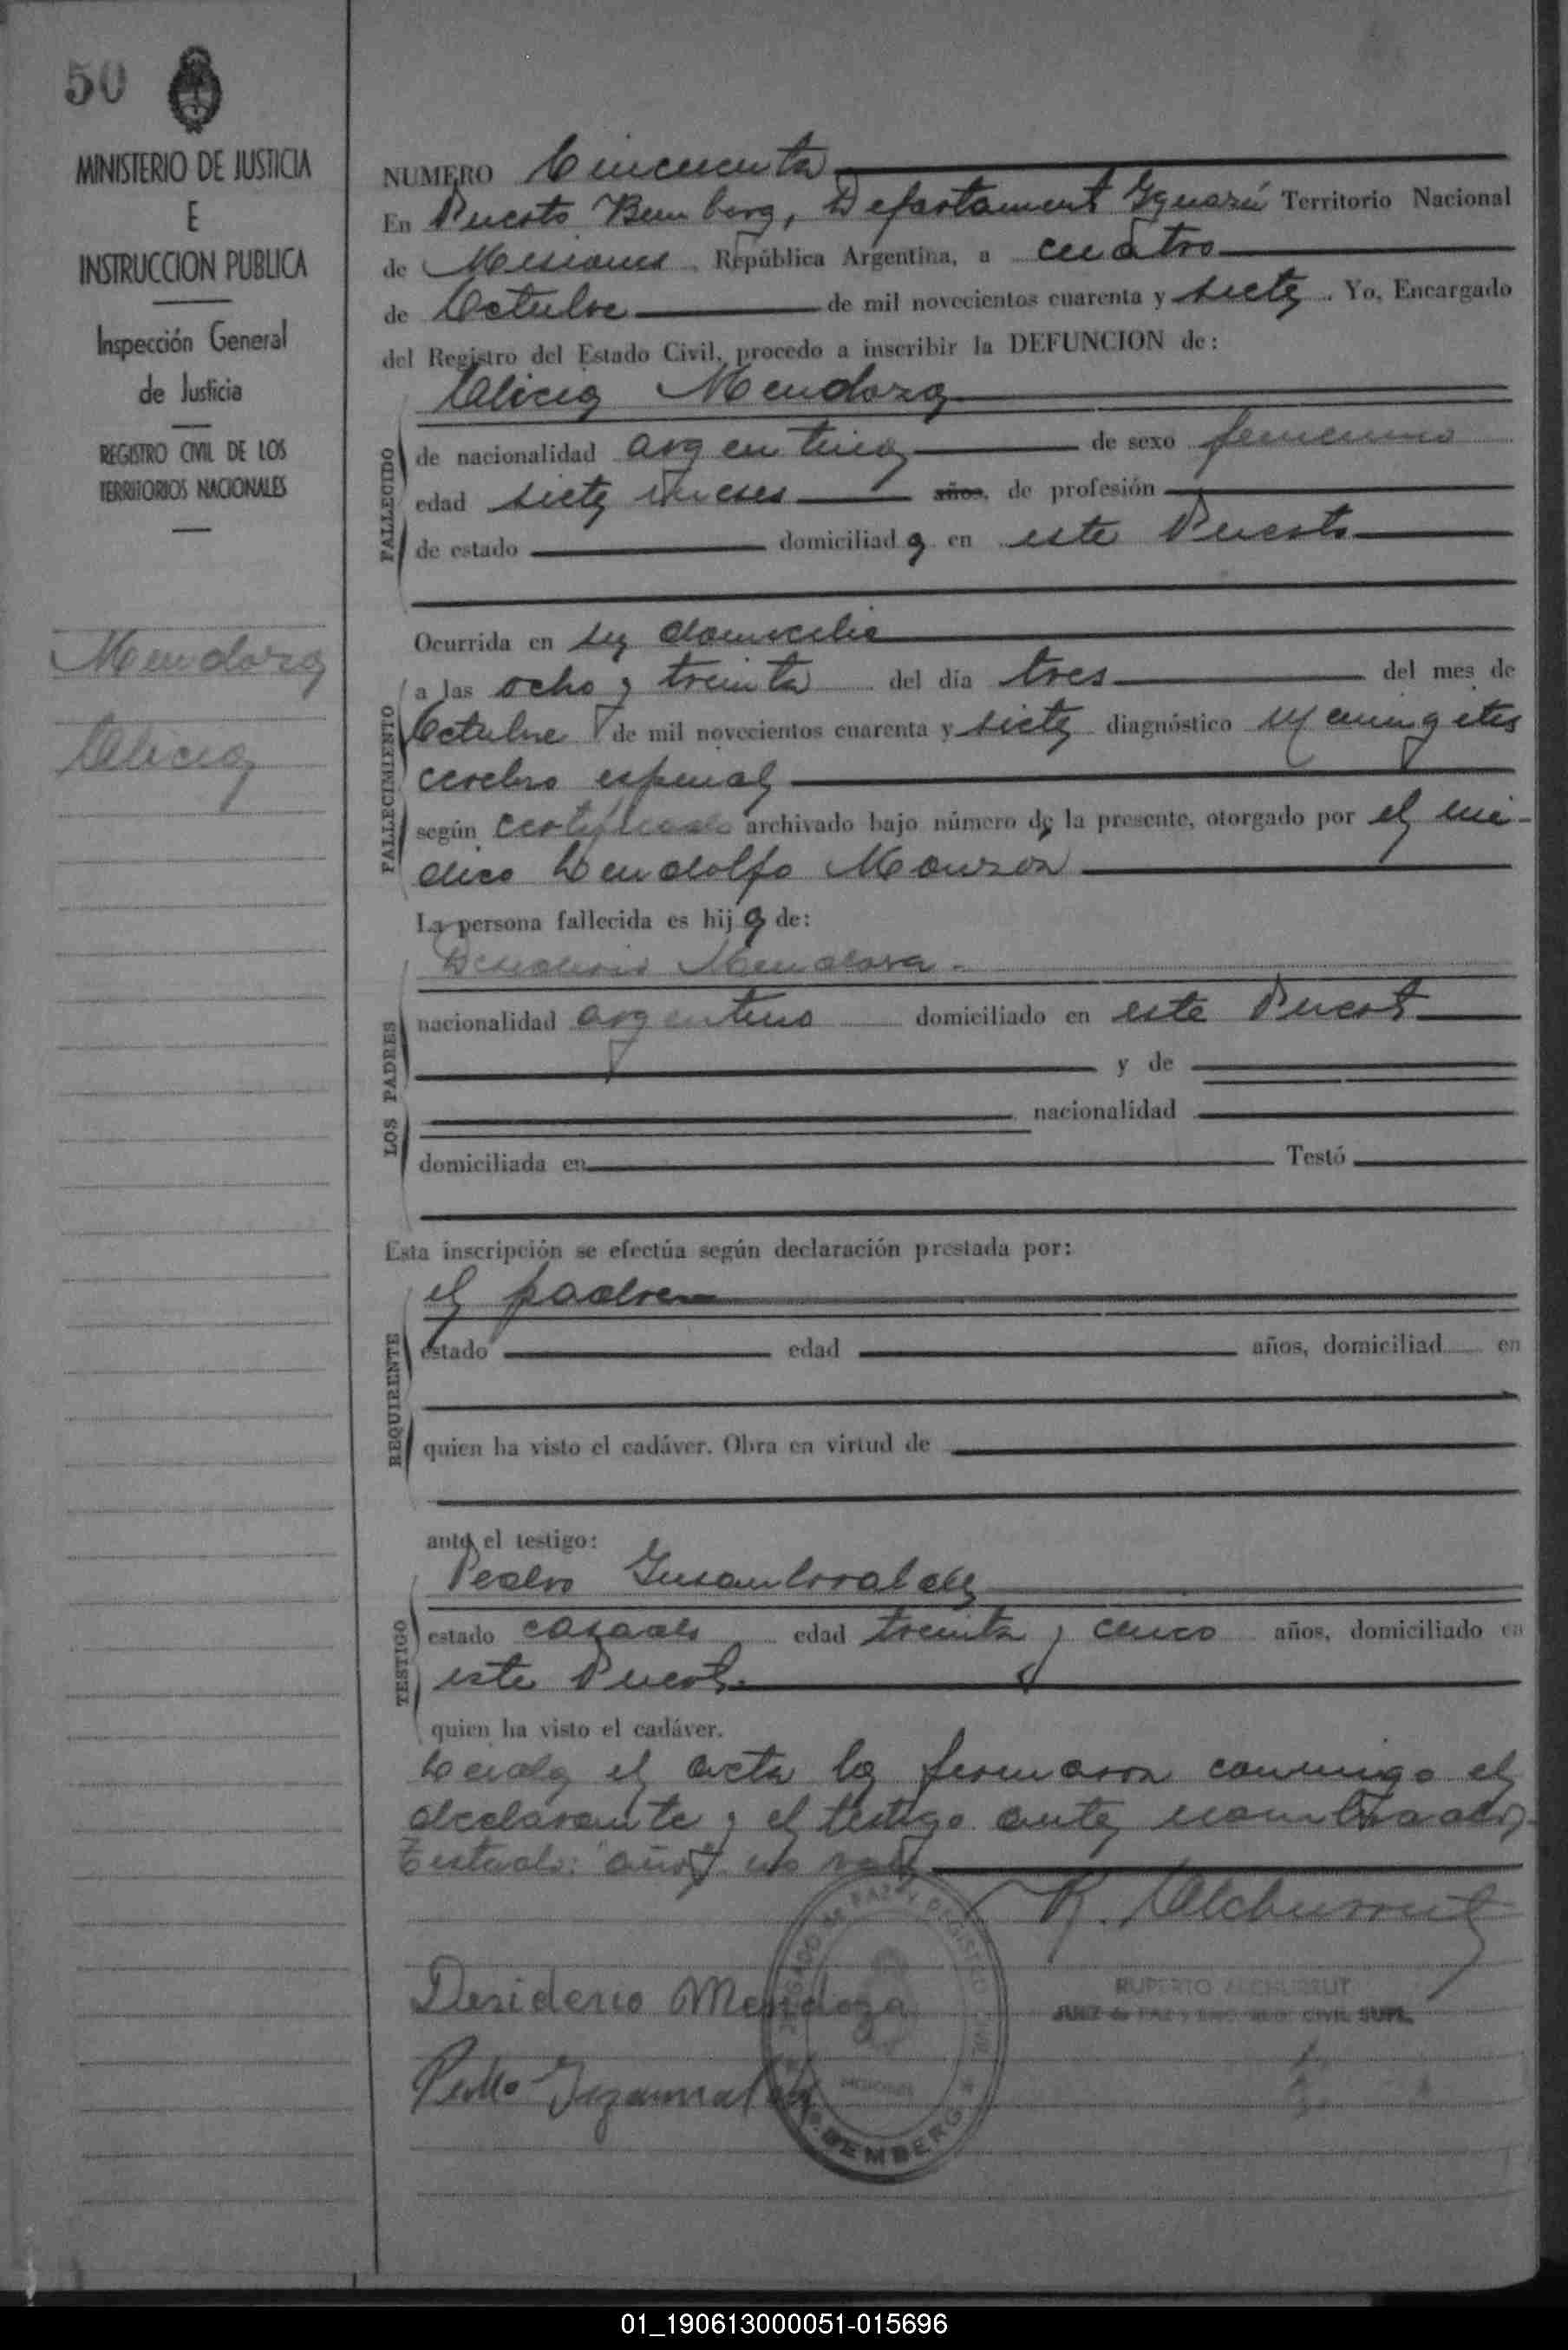 50
MINISTERIO DE JUSTICIA
E
INSTRUCCION PUBLICA
Inspección General
de Justicia
REGISTRO CIVIL DE LOS
TERRITORIOS NACIONALES
Mendoza
Alicia
NUMERO Cincuenta
En Puerto Bemberg, Departament Iguazú Territorio Nacional
de Misiones, República Argentina, a cuatro
de Octubre de mil novecientos cuarenta y siete. Yo, Encargado
del Registro del Estado Civil, procedo a inscribir la DEFUNCION de:
Alicia Mendoza
FALLECIDO
de nacionalidad argentina de sexo femenino
edad siete meses años, de profesión
de estado domiciliada en este Puerto
Ocurrida en su domicilio
FALLECIMIENTO
a las ocho y treinta del día tres del mes de
Octubre de mil novecientos cuarenta y siete diagnóstico Meningitis
cerebro espinal
según certificado archivado bajo número de la presente, otorgado por el mé-
dico Lendolfo Monzon
La persona fallecida es hija de:
Desiderio Mendoza.
LOS PADRES
nacionalidad argentino domiciliado en este Puerto
y de
nacionalidad
domiciliada en Testó
Esta inscripción se efectúa según declaración prestada por:
el padre
REQUIRENTE
estado edad años, domiciliad en
quien ha visto el cadáver. Obra en virtud de
ante el testigo:
Pedro
TESTIGO
estado casado edad treinta y cinco años, domiciliado en
este Puerto.
quien ha visto el cadáver.
Leida el acta la firmaron conmigo el
declarante y el testigo ante nombrado.
Testado: "años" no vale
R. Alchurrut
Desiderio Mendoza
RUPERTO ALCHURRUT
JUEZ de PAZ y ENC. REG. CIVIL SUPL.
Pedro
JUZGADO de PAZ Y REGISTRO CIVIL
MISIONES
BEMBERG
01_190613000051-015696